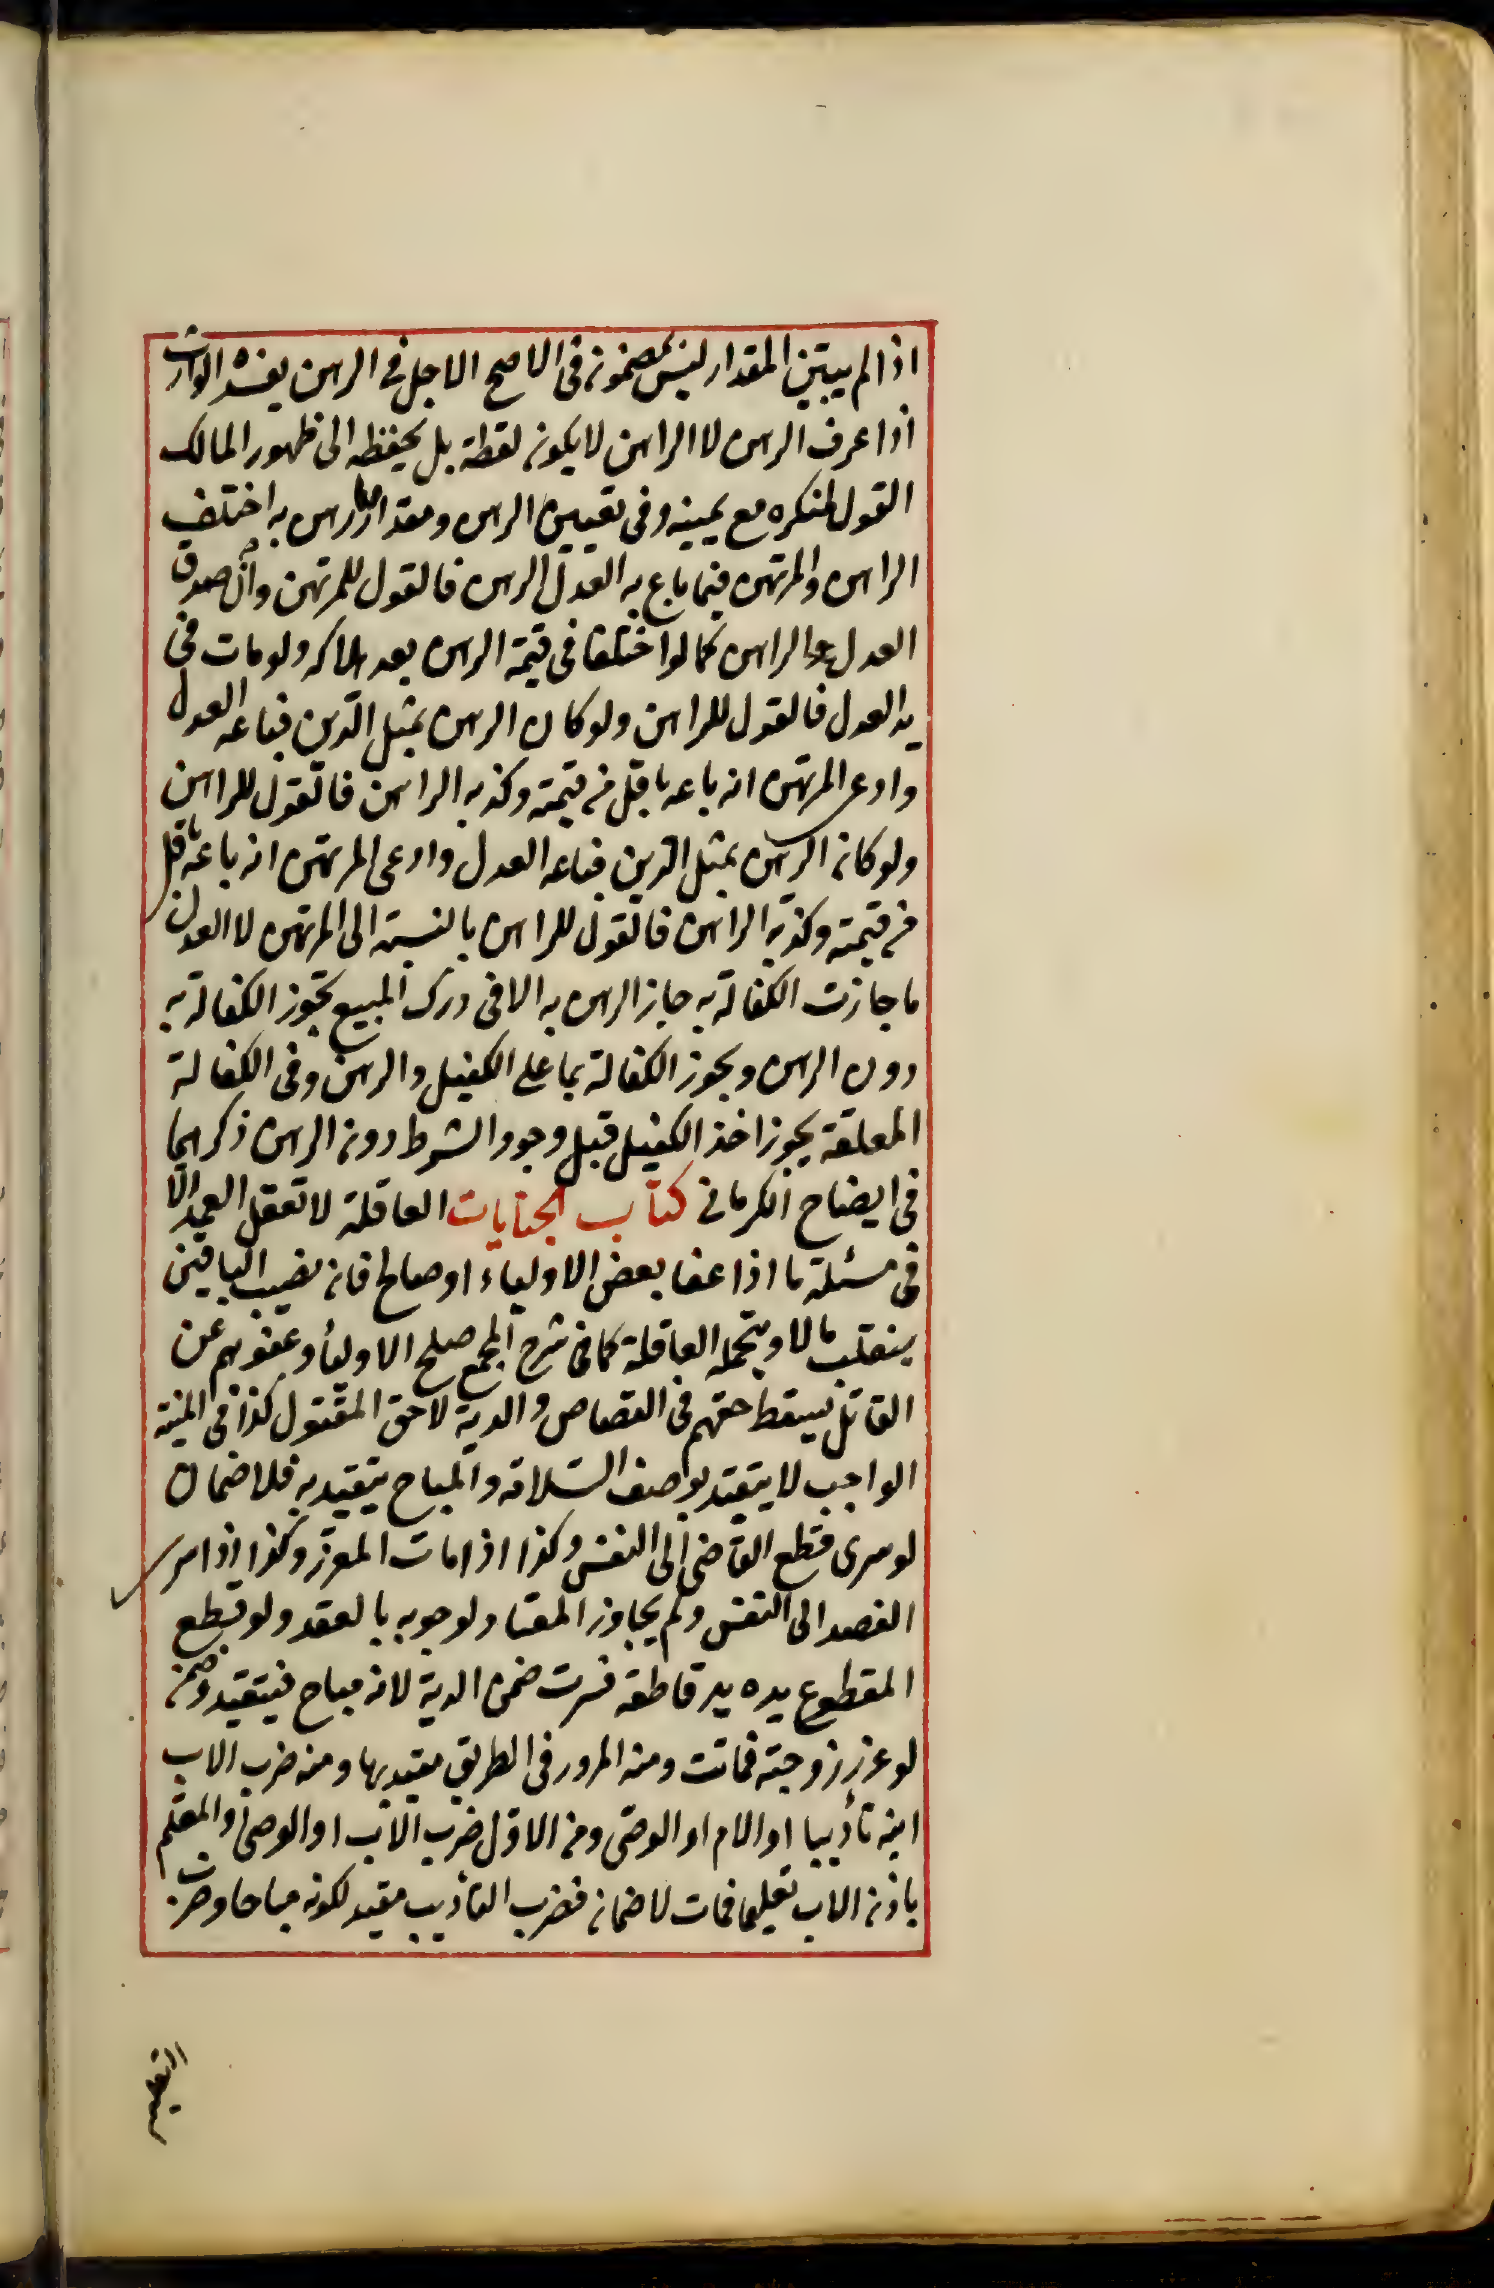 اذا لم يبين المقدار ليس بمضمون فى الاصح الاجل فى الرهن يفسده الوارث
اذا عرف الرهن لا الراهن لا يكون لقطة بل يحفظه الى ظهور المالك
القول لمنكره مع يمينه وفى تعيين الرهن ومقدار ما رهن به اختلف
الراهن والمرتهن فيما باع به العدل الرهن فالقول للمرتهن وان صدق
العدل الراهن كما لو اختلفا فى قيمة الرهن بعد هلاكه ولو مات فى
يد العدل فالقول للراهن ولو كان الرهن بمثل الدين فباعه العدل
وادعى المرتهن انه باعه باقل من قيمته وكذبه الراهن فالقول للراهن
ولو كان الرهن بمثل الدين فباعه العدل وادعى المرتهن انه باعه باقل
من قيمته وكذبه الراهن فالقول للراهن بالنسبة الى المرتهن لا العدل
ما جازت الكفالة به جاز الرهن به الا فى درك المبيع تجوز الكفالة به
دون الرهن ويجوز الكفالة بما على الكفيل والرهن وفى الكفالة
المعلقة يجوز اخذ الكفيل قبل وجود الشرط دون الرهن ذكرهما
فى ايضاح الكرمانى كتاب الجنايات العاقلة لا تعقل العمد الا
فى مسئلة ما اذا عفا بعض الاولياء او صالح فان نصيب الباقين
ينقلب مالا ويتحمله العاقلة كما فى شرح المجمع صلح الاولياء وعفوهم عن
القاتل يسقط حقهم فى القصاص والدية لا حق المقتول كذا فى المنية
الواجب لا يتقيد بوصف السلامة والمباح يتقيد به فلا ضمان
لو سرى قطع القاضى الى النفس وكذا اذا مات المعزر وكذا اذا سرى
الفصد الى النفس ولم يجاوز المعتاد لوجوبه بالعقد ولو قطع
المقطوع يده يد قاطعه فسرت ضمن الدية لانه مباح فيتقيد وضمن
لو عزر زوجته فماتت ومنه المرور فى الطريق مقيد بها ومنه ضرب الاب
ابنه تأديبا او الام او الوصى ومن الاول ضرب الاب او الوصى او المعلم
باذن الاب تعليما فمات لا ضمان فضرب التأديب مقيد لكونه مباحا وضرب
التعليم